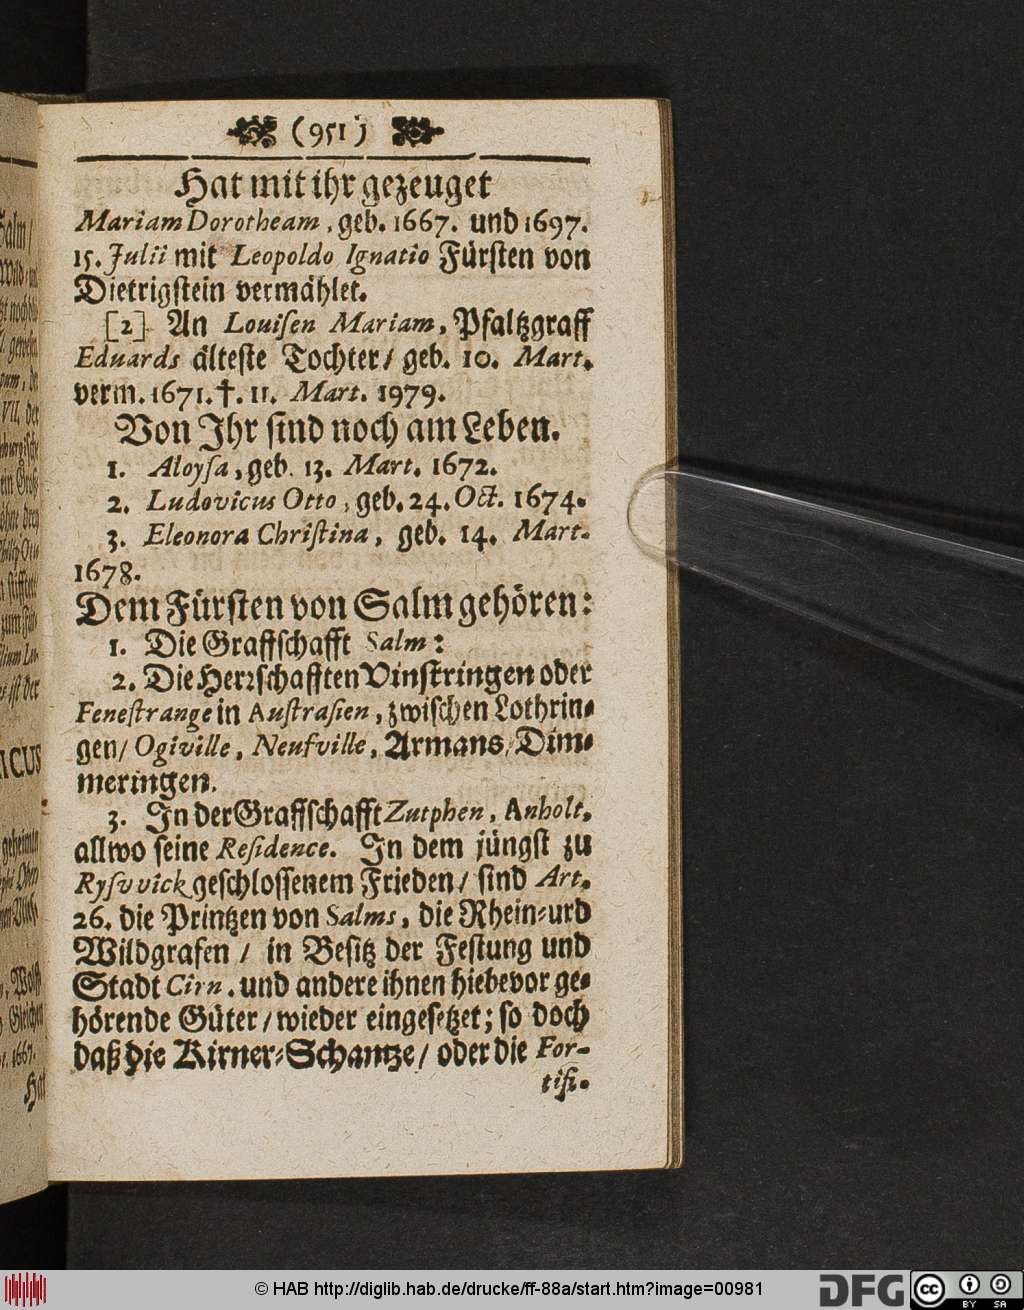 (951)
Hat mit ihr gezeuget
Mariam Dorotheam, geb. 1667. und 1697.
15. Julii mit Leopoldo Ignatio Fürsten von
Dietrigstein vermählet.
[2] An Louisen Mariam, Pfaltzgraff
Eduards älteste Tochter/ geb. 10. Mart.
verm. 1671. †. 11. Mart. 1979.
Von Ihr sind noch am Leben.
1. Aloysa, geb. 13. Mart. 1672.
2. Ludovicus Otto, geb. 24. Oct. 1674.
3. Eleonora Christina, geb. 14. Mart.
1678.
Dem Fürsten von Salm gehören:
1. Die Graffschafft Salm:
2. Die Herrschafften Vinstringen oder
Fenestrange in Austrasien, zwischen Lothrin-
gen/ Ogiville, Neufville, Armans, Dim-
meringen.
3. In der Graffschafft Zutphen, Anholt,
allwo seine Residence. In dem jüngst zu
Rysvvick geschlossenem Frieden/ sind Art.
26. die Printzen von Salms, die Rhein-urd
Wildgrafen / in Besitz der Festung und
Stadt Cirn. und andere ihnen hiebevor ge-
hörende Güter/ wieder eingesetzet; so doch
daß die Kirner-Schantze/ oder die For-
tifi-
© HAB http://diglib.hab.de/drucke/ff-88a/start.htm?image=00981
DFG
cc
BY SA